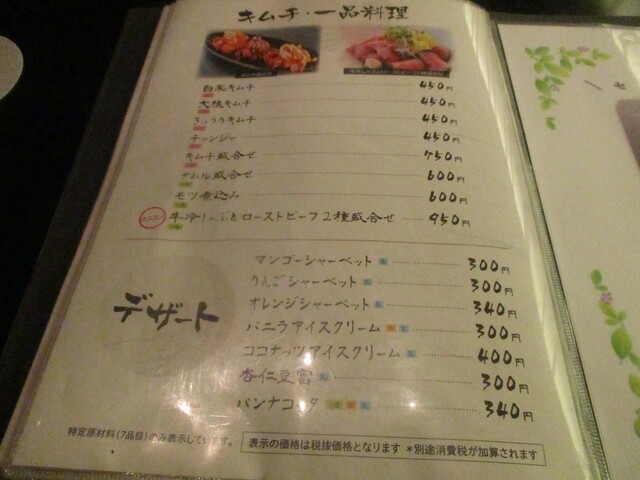 キムチ・一品料理
白菜キムチ 450円
大根キムチ 450円
きゅうりキムチ 450円
チャンジャ 450円
キムチ盛合せ 750円
ナムル盛合せ 600円
モツ煮込み 600円
牛冷しゃぶとローストビーフ2種盛合せ 950円
デザート
マンゴーシャーベット 300円
りんごシャーベット 300円
オレンジシャーベット 340円
バニラアイスクリーム 300円
ココナッツアイスクリーム 400円
杏仁豆富 300円
パンナコッタ 340円
特定原材料(7品目)のみ表示しています。
表示の価格は税抜価格となります *別途消費税が加算されます